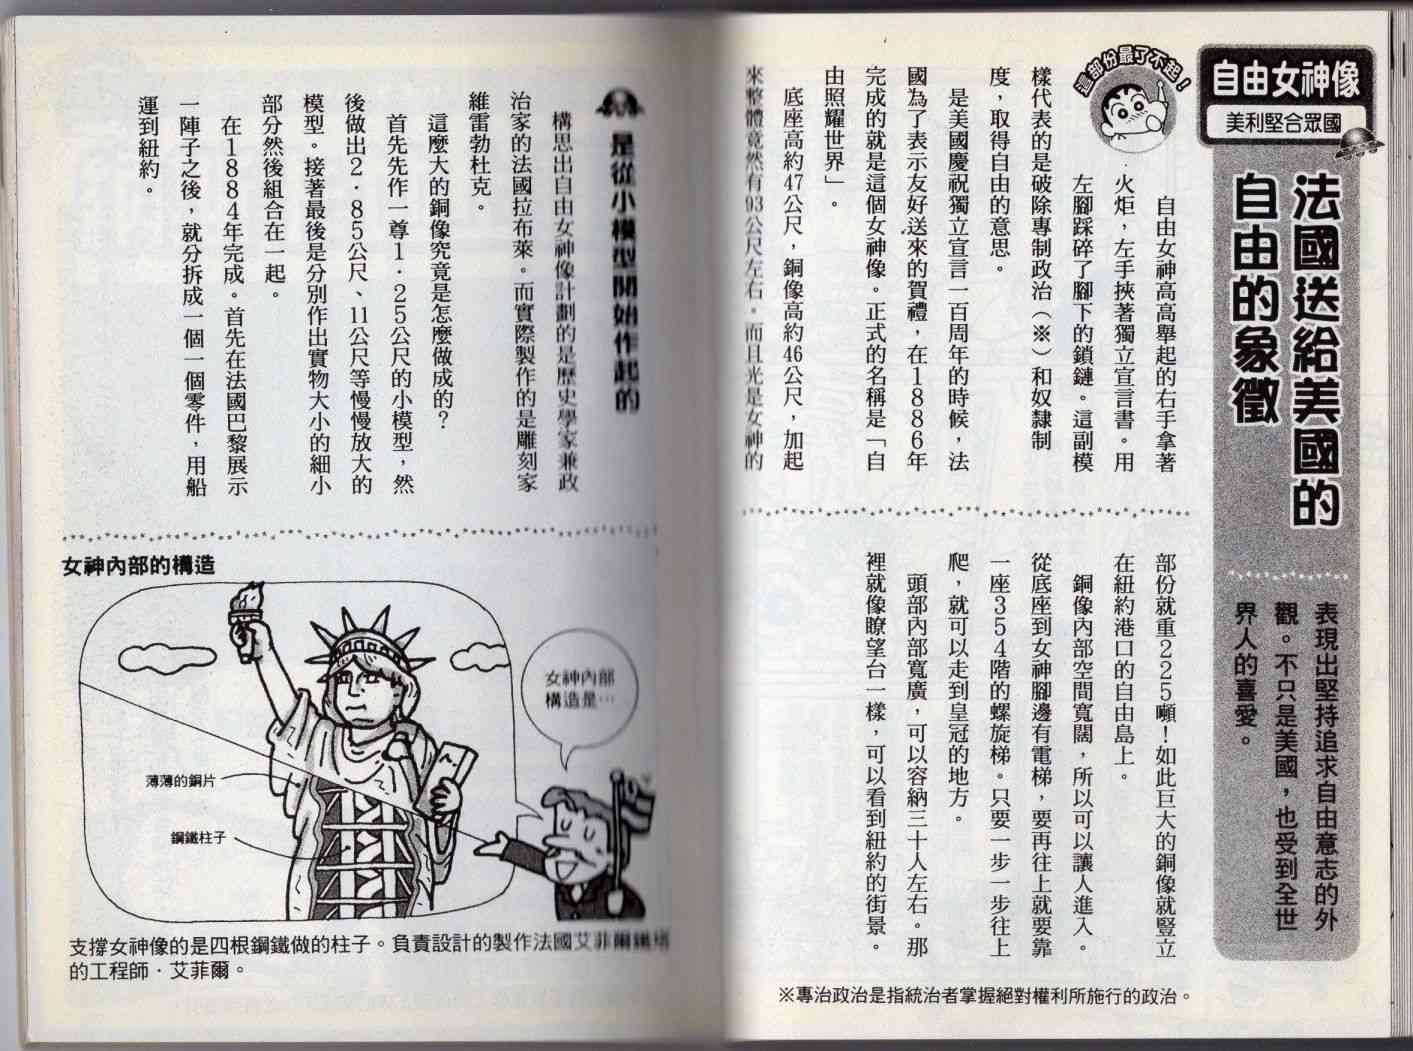 自由女神像
美利堅合眾國
法國送給美國的
自由的象徵
表現出堅持追求自由意志的外
觀。不只是美國，也受到全世
界人的喜愛。
這部份最了不起！
自由女神高高舉起的右手拿著
火炬，左手挾著獨立宣言書。用
左腳踩碎了腳下的鎖鏈。這副模
樣代表的是破除專制政治（※）和奴隸制
度，取得自由的意思。
是美國慶祝獨立宣言一百周年的時候，法
國為了表示友好送來的賀禮，在1886年
完成的就是這個女神像。正式的名稱是「自
由照耀世界」。
底座高約47公尺，銅像高約46公尺，加起
來整體竟然有93公尺左右。而且光是女神的
部份就重225噸！如此巨大的銅像就豎立
在紐約港口的自由島上。
銅像內部空間寬闊，所以可以讓人進入。
從底座到女神腳邊有電梯，要再往上就要靠
一座354階的螺旋梯。只要一步一步往上
爬，就可以走到皇冠的地方。
頭部內部寬廣，可以容納三十人左右。那
裡就像瞭望台一樣，可以看到紐約的街景。
※專治政治是指統治者掌握絕對權利所施行的政治。
是從小模型開始作起的
構思出自由女神像計劃的是歷史學家兼政
治家的法國拉布萊。而實際製作的是雕刻家
維雷勃杜克。
這麼大的銅像究竟是怎麼做成的？
首先先作一尊1．25公尺的小模型，然
後做出2．85公尺、11公尺等慢慢放大的
模型。接著最後是分別作出實物大小的細小
部分然後組合在一起。
在1884年完成。首先在法國巴黎展示
一陣子之後，就分拆成一個一個零件，用船
運到紐約。
女神內部的構造
女神內部
構造是…
薄薄的銅片
鋼鐵柱子
支撐女神像的是四根鋼鐵做的柱子。負責設計的製作法國艾菲爾鐵塔
的工程師．艾菲爾。